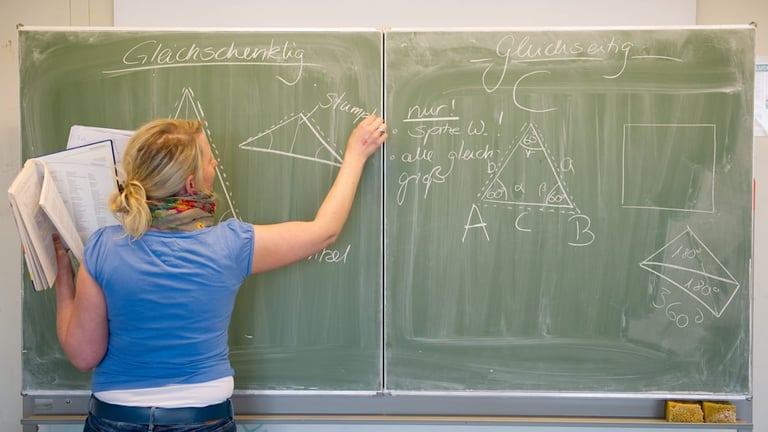 Gleichschenklig
stumpf
Gleichseitig
C
nur!
• spitze W.!
• alle gleich
groß
60°
γ
b
a
α
β
60°
60°
A
c
B
180°
180°
360°